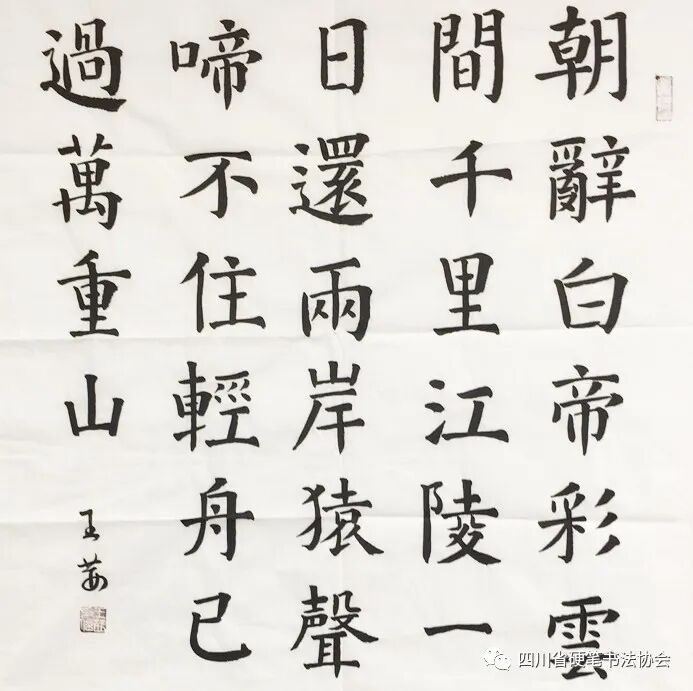 朝辭白帝彩雲
間千里江陵一
日還兩岸猿聲
啼不住輕舟已
過萬重山
王
四川省硬笔书法协会